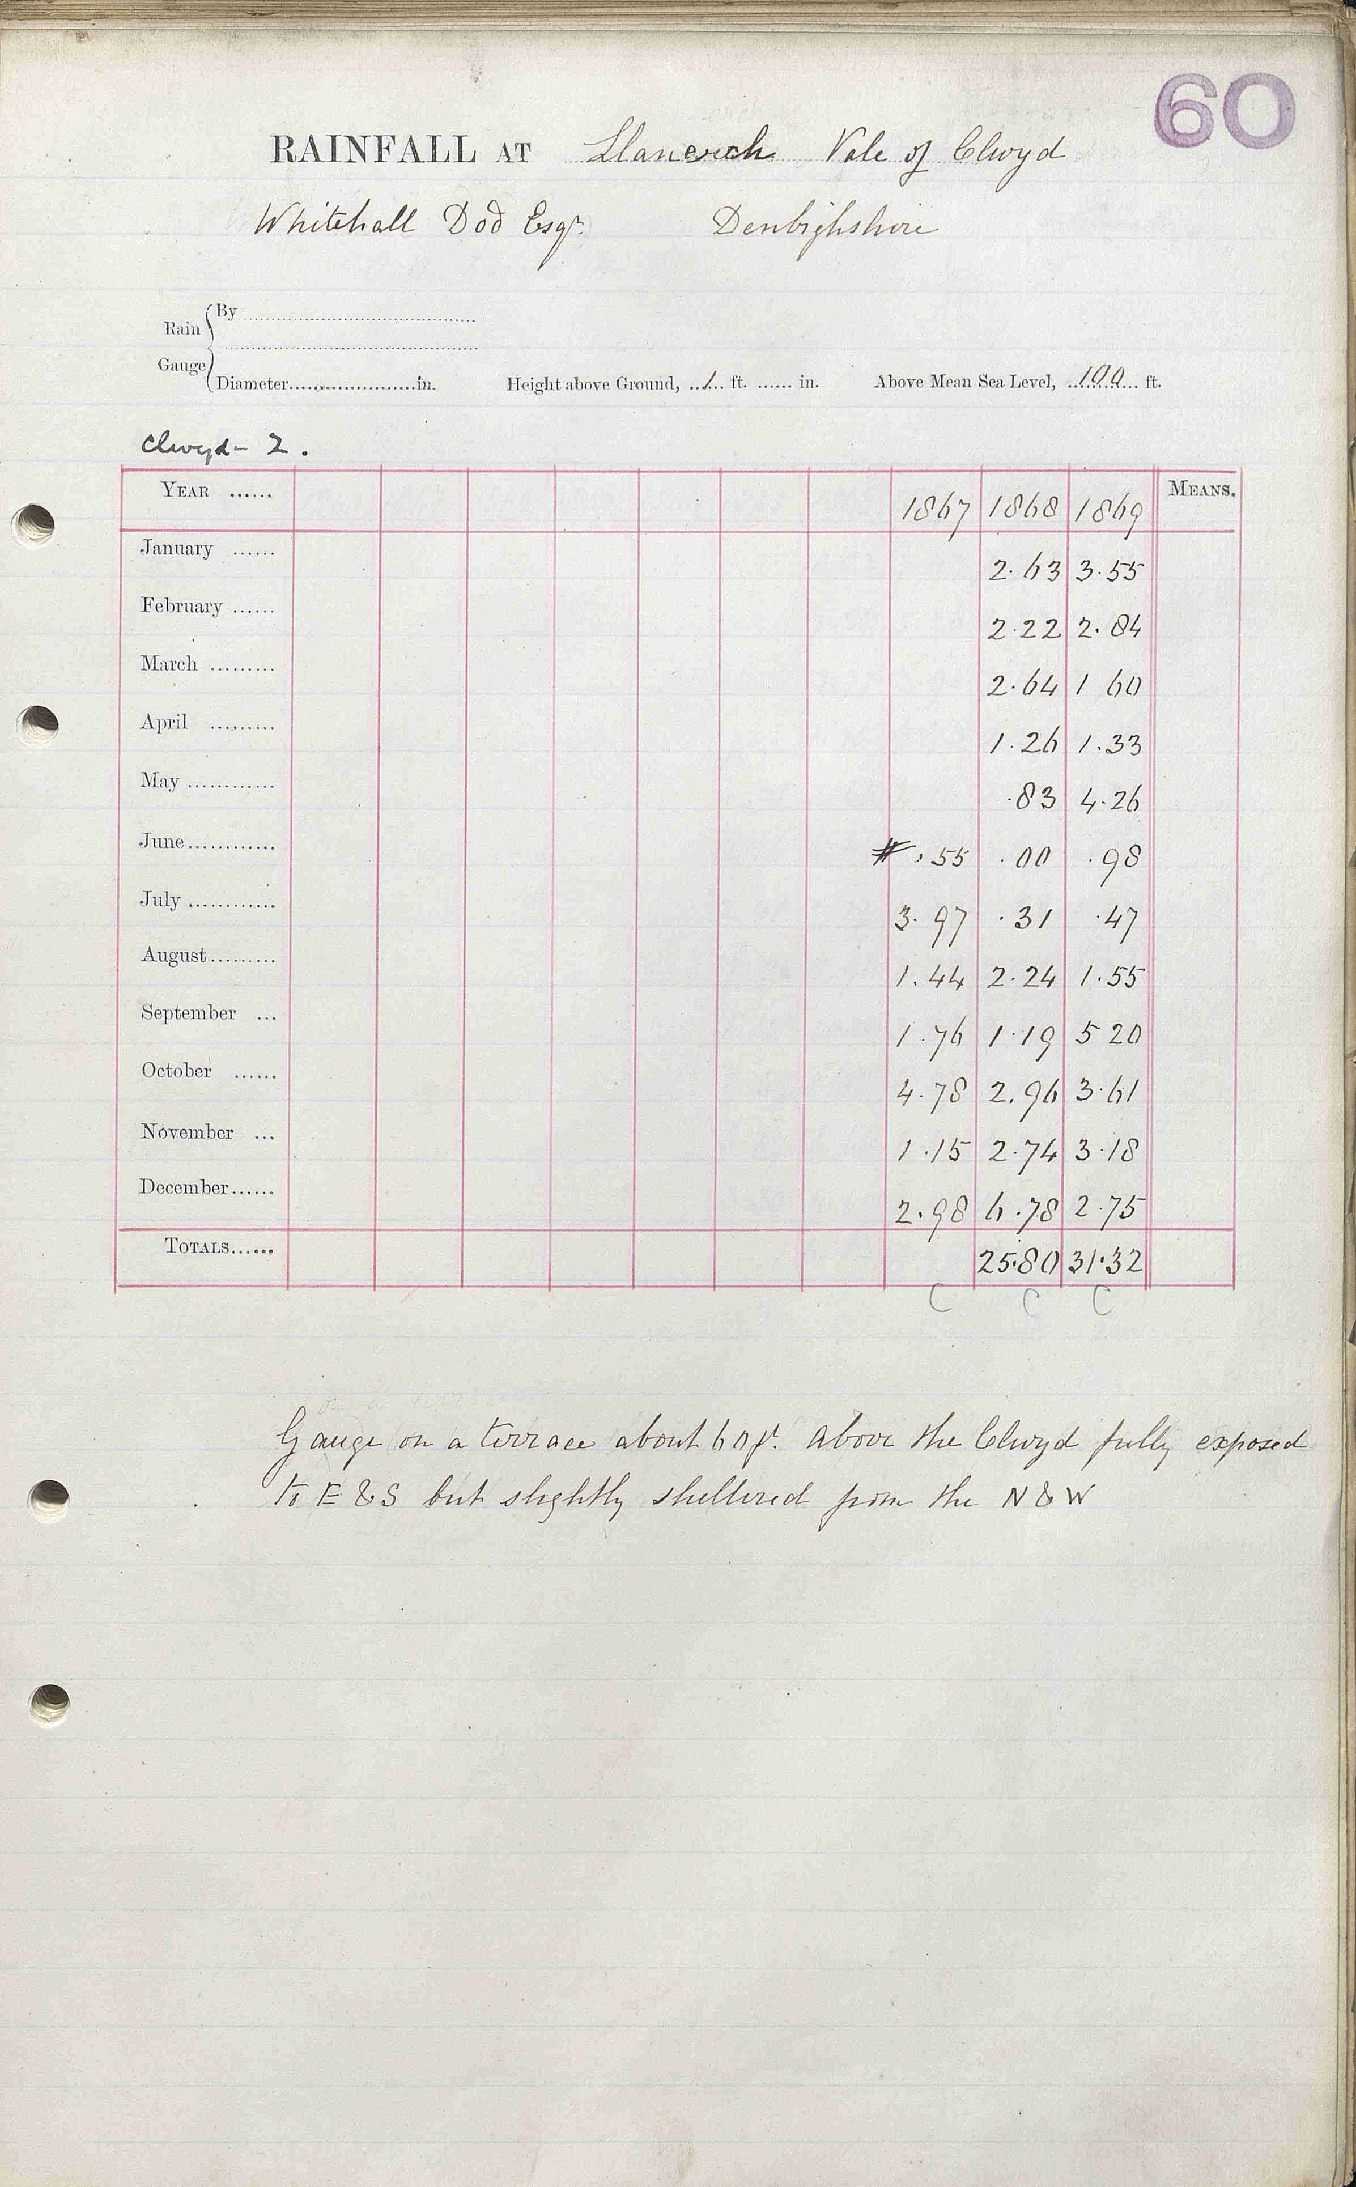 60
RAINFALL AT Llanerch Vale of Clwyd
Whitehall Dod Esqr. Denbighshire
Rain Gauge { By
Diameter in. Height above Ground, 1 ft. in. Above Mean Sea Level, 100 ft.
Clwyd - 2.
YEAR ...... 1867 1868 1869 MEANS.
January ...... 2.63 3.55
February ...... 2.22 2.84
March ......... 2.64 1 60
April ......... 1.26 1.33
May ............ .83 4.26
June ............ # .55 .00 .98
July ............ 3.97 .31 .47
August ......... 1.44 2.24 1.55
September ... 1.76 1.19 5 20
October ...... 4.78 2.96 3.61
November ... 1.15 2.74 3.18
December ...... 2.98 6.78 2.75
TOTALS ...... 25.80 31.32
C C C
Gauge on a terrace about 60 ft. above the Clwyd fully exposed
to E & S but slightly sheltered from the N & W